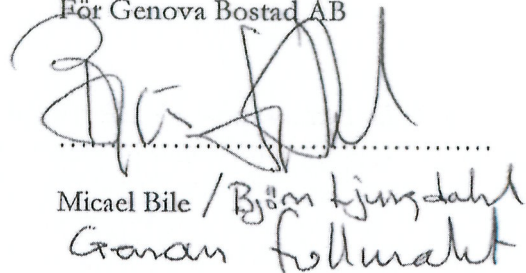 För Genova Bostad AB
Micael Bile / Björn Ljungdahl
Genom fullmakt